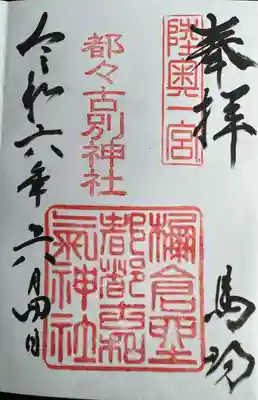 奉拝
馬場
陸奥一宮
都々古別神社
都都古和
氣神社
令和六年六月四日